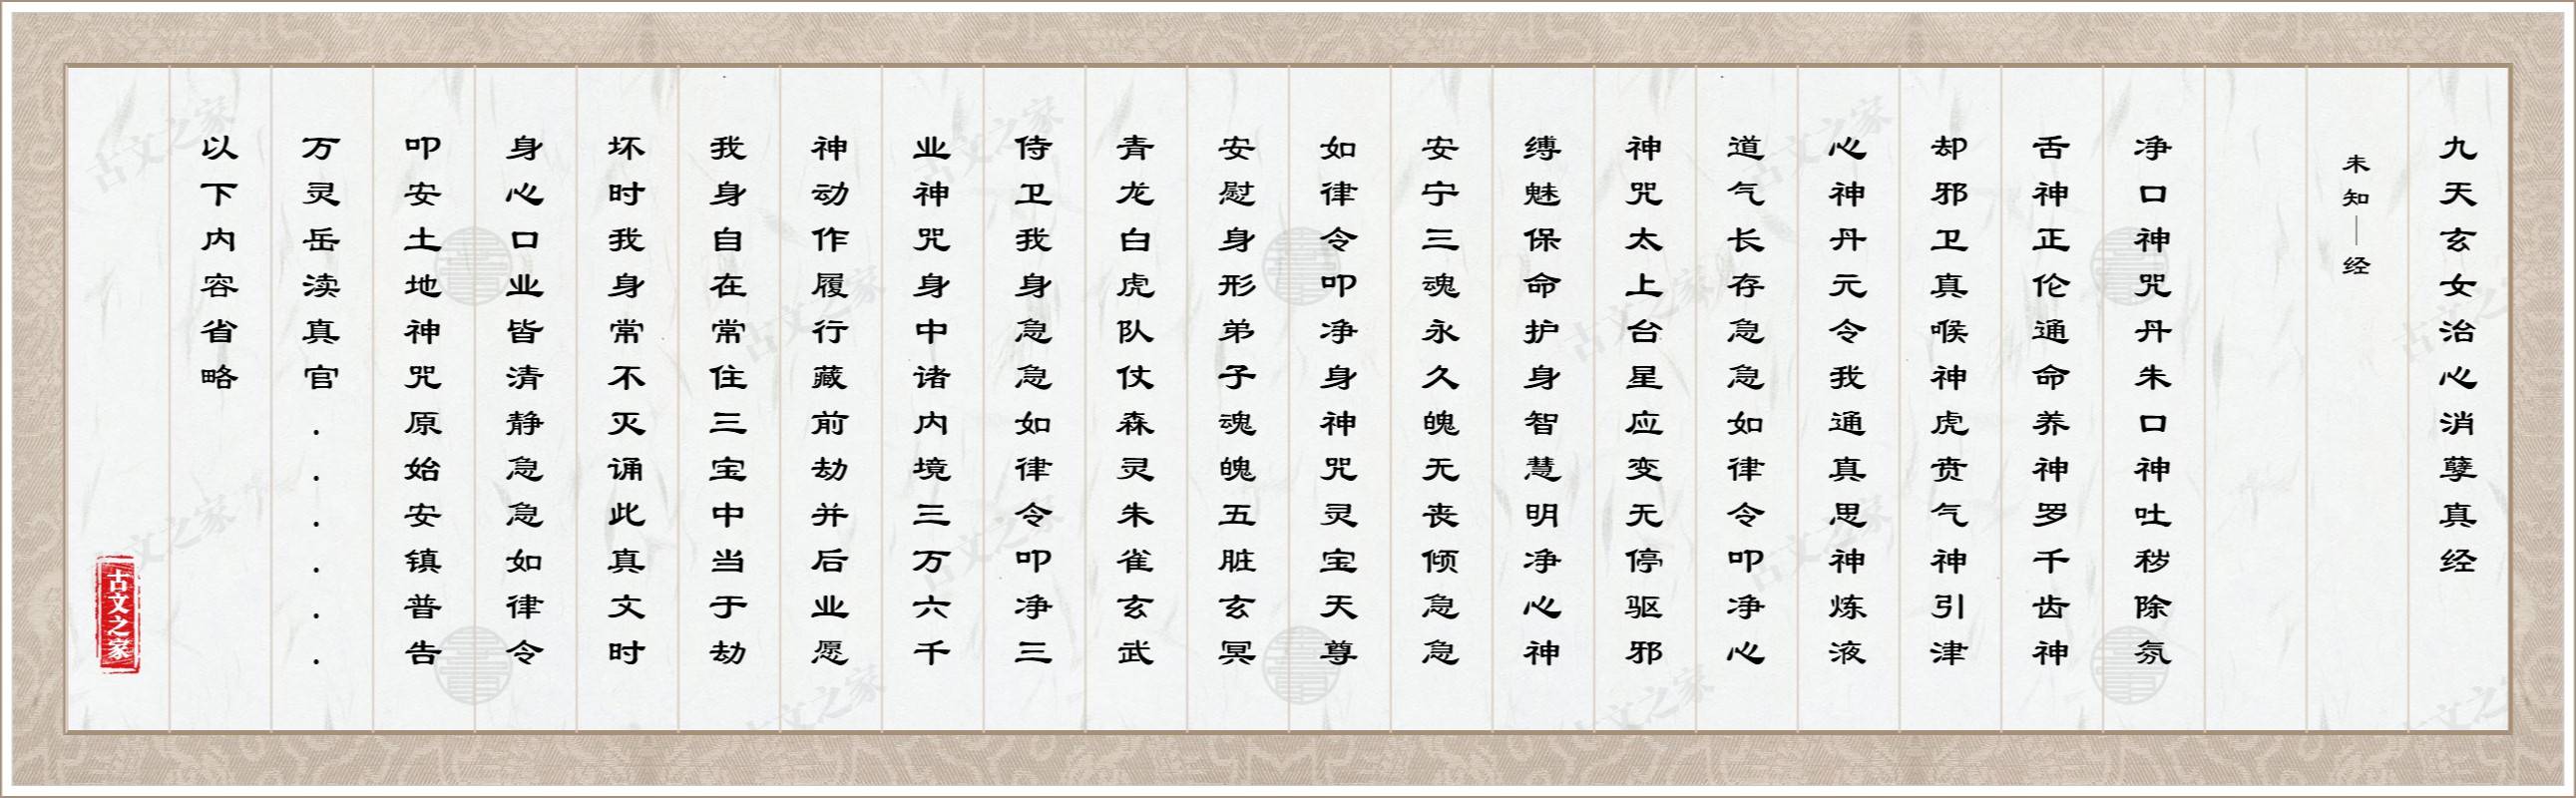 九天玄女治心消孽真经
未知—经
净口神咒丹朱口神吐秽除氛
舌神正伦通命养神罗千齿神
却邪卫真喉神虎贲气神引津
心神丹元令我通真思神炼液
道气长存急急如律令叩净心
神咒太上台星应变无停驱邪
缚魅保命护身智慧明净心神
安宁三魂永久魄无丧倾急急
如律令叩净身神咒灵宝天尊
安慰身形弟子魂魄五脏玄冥
青龙白虎队仗森灵朱雀玄武
侍卫我身急急如律令叩净三
业神咒身中诸内境三万六千
神动作履行藏前劫并后业愿
我身自在常住三宝中当于劫
坏时我身常不灭诵此真文时
身心口业皆清静急急如律令
叩安土地神咒原始安镇普告
万灵岳渎真官......
以下内容省略
古文之家